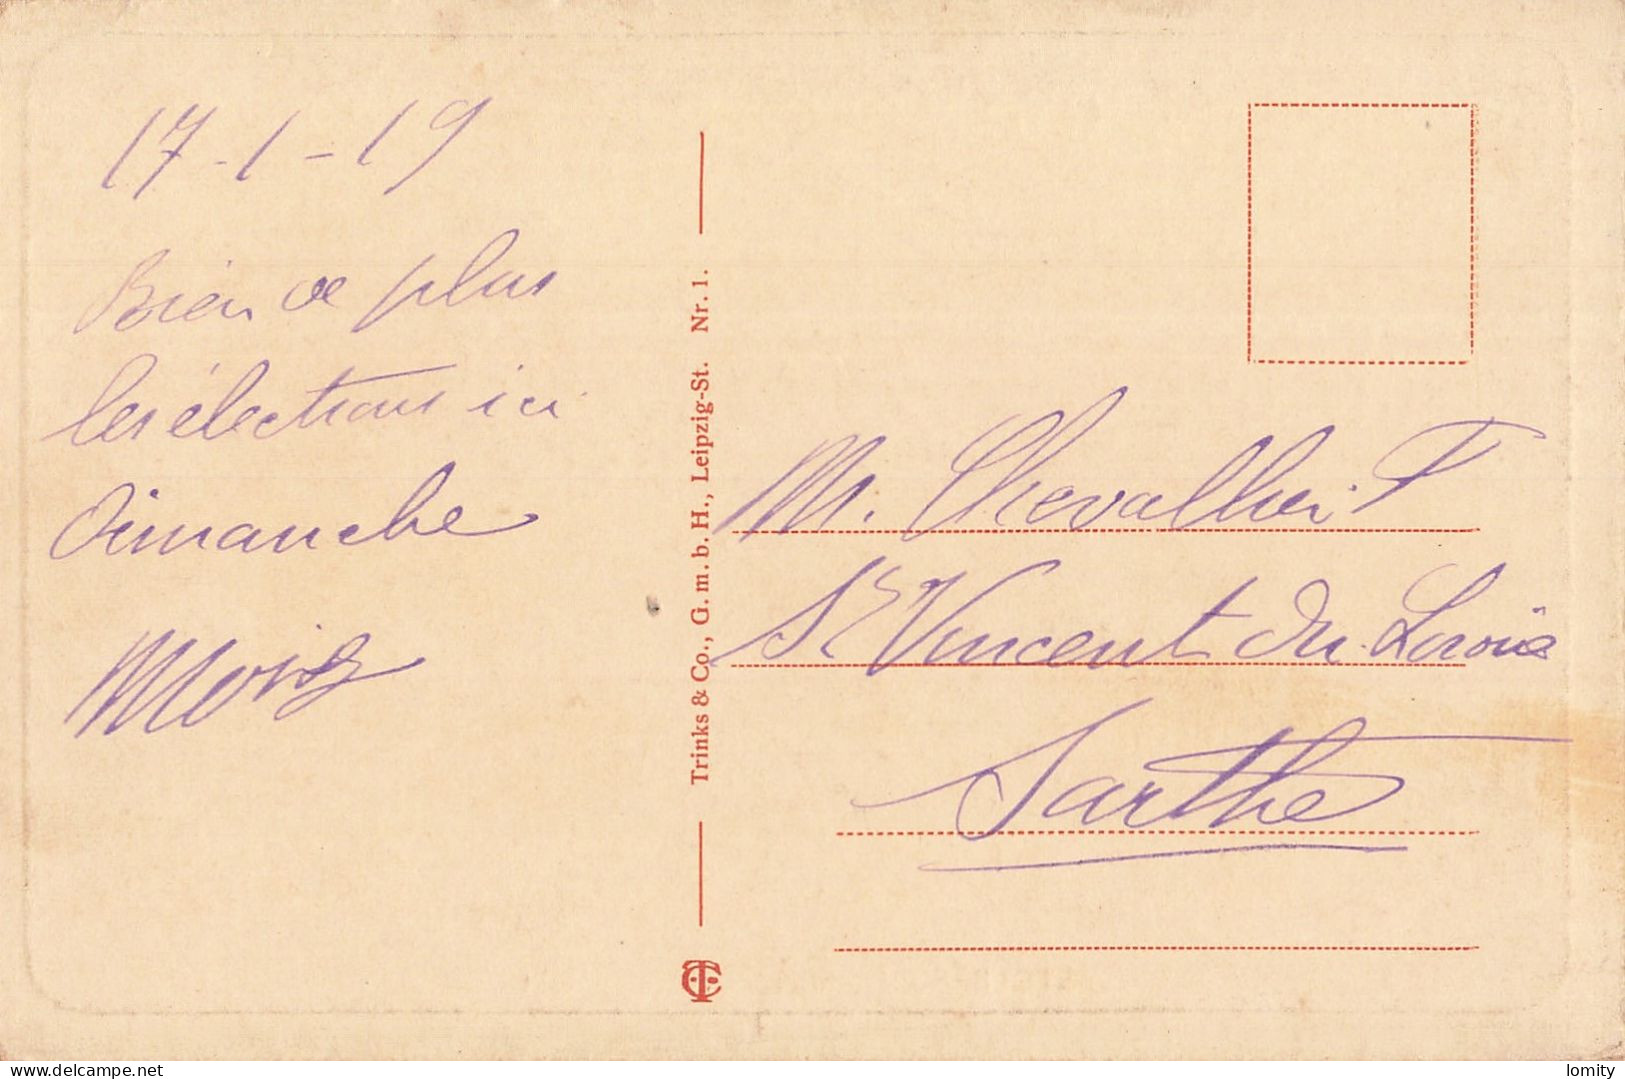 17-1-19
Bien de plus
les élections ici
Dimanche
Trinks & Co., G. m. b. H., Leipzig-St. Nr. 1.
Mr. Chevallier F
St Vincent du Loroüe
Sarthe
delcampe.net
lomity